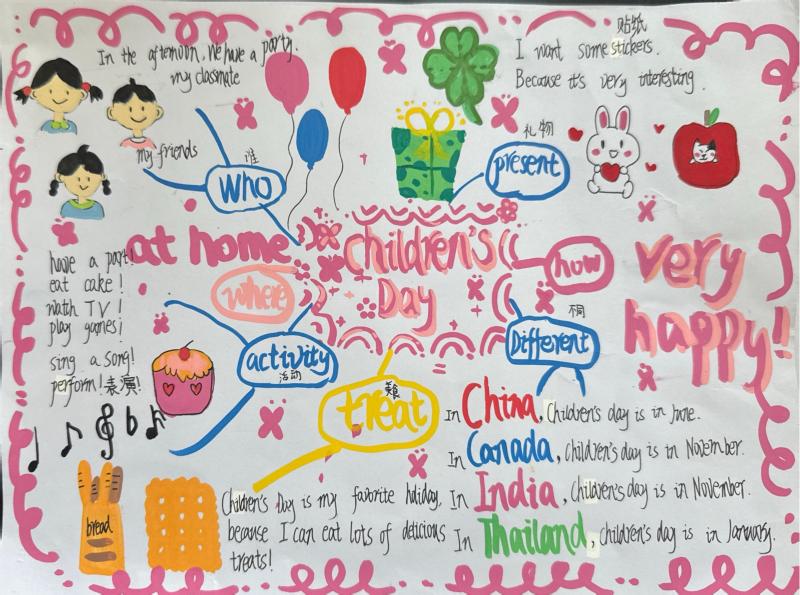 In the afternoon, we have a party.
my classmate
my friends
谁
who
贴纸
I want some stickers.
Because it's very interesting.
礼物
present
at home
where
children's
Day
how
very
happy!
have a party!
eat cake!
wath TV!
play games!
sing a song!
perform!表演!
activity
活动
不同
Different
treat
In China, Children's day is in June.
In Canada, Children's day is in November.
In India, Children's day is in November.
In Thailand, children's day is in January.
bread
Children's Day is my favorite holiday,
because I can eat lots of delicious
treats!